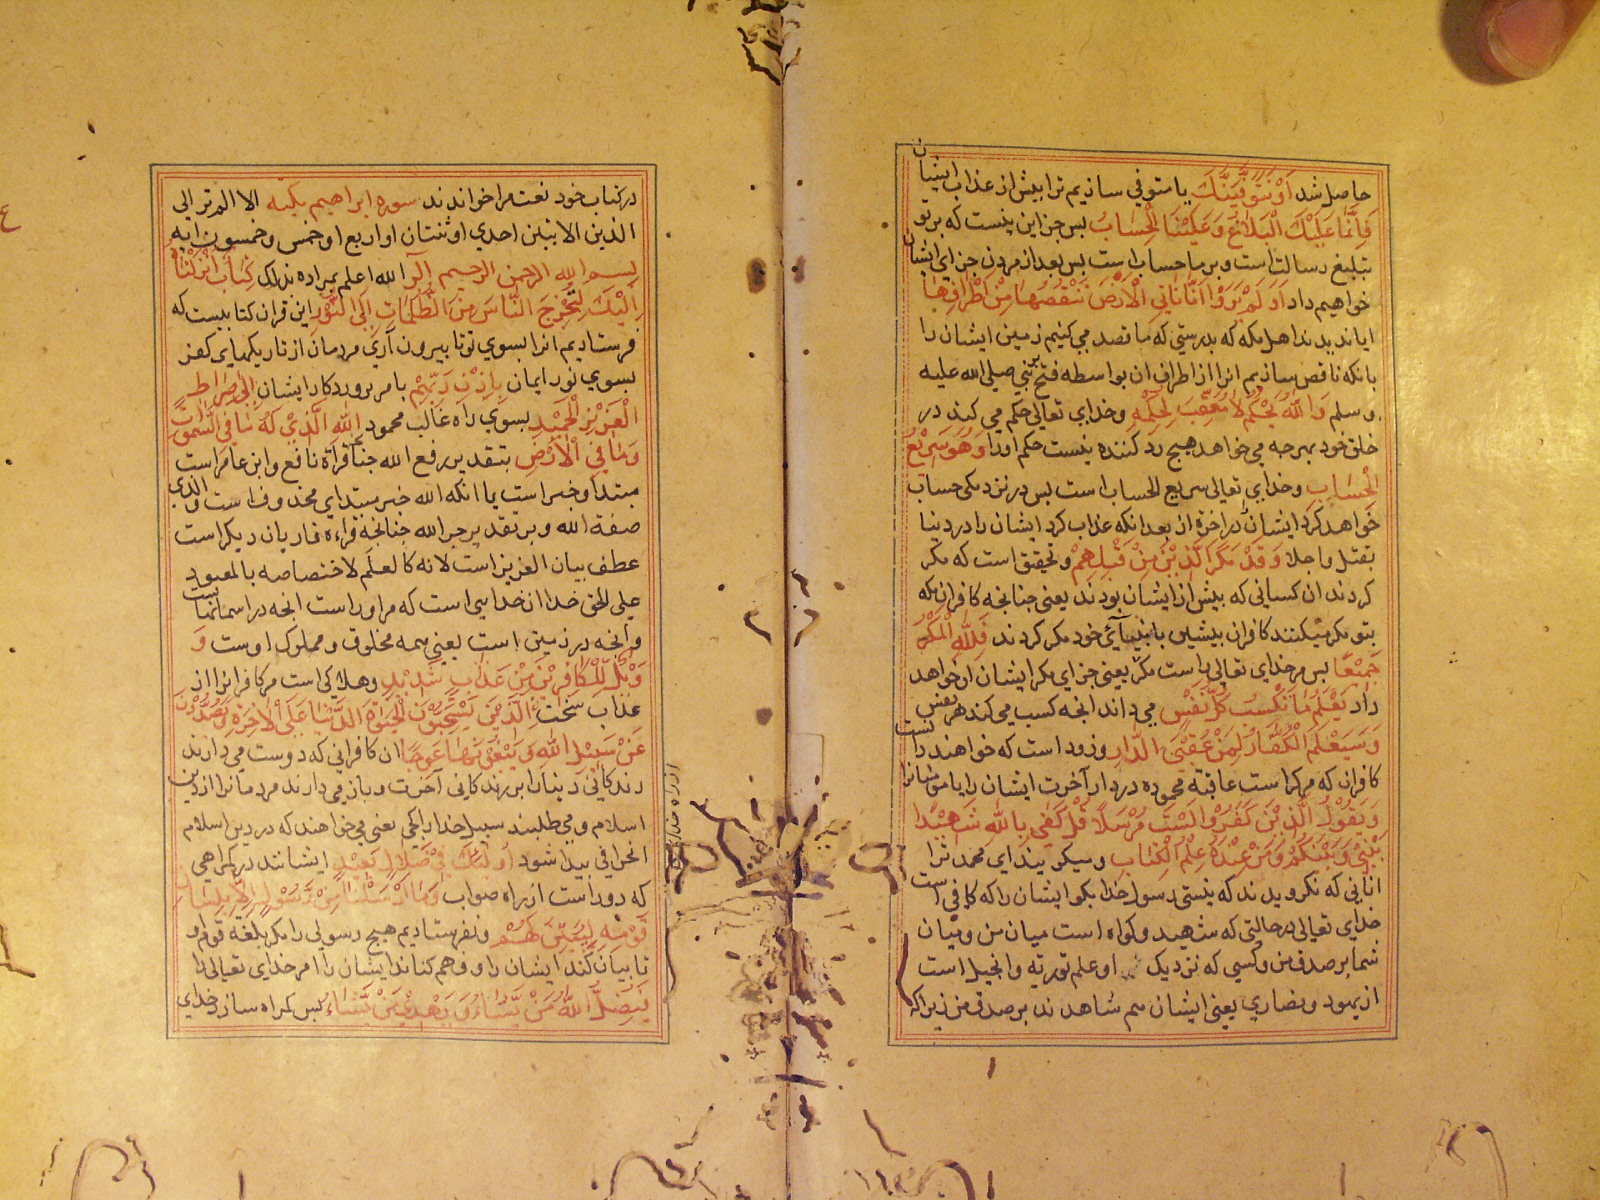 حاصل شد اَوْ نَتَوَفَّیَنَّكَ یا متوفی سازیم ترا پیش از عذاب ایشان
فَاِنَّمَا عَلَیْكَ الْبَلَاغُ وَعَلَیْنَا الْحِسَابُ بس جز این نیست که بر تو
تبلیغ رسالت است و بر ما حساب است بس بعد از مردن جزای ایشان
خواهیم داد اَوَلَمْ یَرَوْا اَنَّا نَاْتِی الْاَرْضَ نَنْقُصُهَا مِنْ اَطْرَافِهَا
ایا ندیدند اهل مکه که بدرستی که ما قصد می کنیم زمین ایشان را
بانکه ناقص سازیم انرا از اطراف ان بواسطه فتح نبی صلی الله علیه
وسلم وَاللّٰهُ یَحْکُمُ لَا مُعَقِّبَ لِحُکْمِهِ وخدای تعالی حکم می کند در
خلق خود بهرچه می خواهد هیچ رد کننده نیست حکم اورا وَهُوَ سَرِیْعُ
الْحِسَابِ وخدای تعالی سریع الحساب است بس در نزدیکی حساب
خواهد کرد ایشان را در اخرة از بعد انکه عذاب کرد ایشان را در دنیا
بقتل واجلا وَقَدْ مَکَرَ الَّذِیْنَ مِنْ قَبْلِهِمْ وتحقیق است که مکر
کردند ان کسانی که بیش از ایشان بودند یعنی چنانچه کافران مکه
بتو مکر میکنند کافران بیشین با نبیائی خود مکر کردند فَلِلّٰهِ الْمَکْرُ
جَمِیْعًا بس مر خدای تعالی راست مکر یعنی جزای مکر ایشان او خواهد
داد یَعْلَمُ مَا تَکْسِبُ کُلُّ نَفْسٍ می داند انچه کسب می کند هر نفس
وَسَیَعْلَمُ الْکُفَّارُ لِمَنْ عُقْبَی الدَّارِ وزود است که خواهند دانست
کافران که مر کراست عاقبة محموده در دار آخرت ایشان را یا مومنانرا
وَیَقُوْلُ الَّذِیْنَ کَفَرُوْا لَسْتَ مُرْسَلًا قُلْ کَفٰی بِاللّٰهِ شَهِیْدًا
بَیْنِیْ وَبَیْنَکُمْ وَمَنْ عِنْدَهُ عِلْمُ الْکِتَابِ ومیکویند ای محمد ترا
انانی که نکرویدند که نیستی رسول خدا بکو ایشان را که کافی است
خدای تعالی در حالتی که شهید وکواه است میان من ومیان
شما بر صدق من وکسی که نزدیک او علم توریة وانجیل است
از یهود ونصاری یعنی ایشان هم شاهدند بر صدق من زیرا که
در کتاب خود نعت مرا خواندند سوره ابراهیم مکیه الا الم تر الی
الذین الایتین احدی او ثنتان او اربع او خمس وخمسون ایه
بسم الله الرحمن الرحیم الر الله اعلم بمراده بذلک کِتَابٌ اَنْزَلْنَاهُ
اِلَیْكَ لِتُخْرِجَ النَّاسَ مِنَ الظُّلُمَاتِ اِلَی النُّوْرِ این قران کتابیست که
فرستادیم انرا بسوی تو تا بیرون آری مردمان از تاریکیهای کفر
بسوی نور ایمان بِاِذْنِ رَبِّهِمْ بامر پروردکار ایشان اِلٰی صِرَاطِ
الْعَزِیْزِ الْحَمِیْدِ بسوی راه غالب محمود اللّٰهِ الَّذِیْ لَهُ مَا فِی السَّمٰوٰتِ
وَمَا فِی الْاَرْضِ بتقدیر رفع الله چنانچه قراة نافع وابن عامر است
مبتدا وخبر است یا انکه الله خبر مبتدای محذوف است والذی
صفة الله وبر تقدیر جر الله چنانچه قراءه قاریان دیکر است
عطف بیان العزیز است لانه کالعلم لاختصاصه بالمعبود
علی الحق خدا ان خدایی است که مر اوراست انچه در اسمانهاست
وانچه در زمین است یعنی همه مخلوق ومملوک اوست وَ
وَیْلٌ لِلْکَافِرِیْنَ مِنْ عَذَابٍ شَدِیْدٍ وهلاکی است مر کافرانرا از
عذاب سخت الَّذِیْنَ یَسْتَحِبُّوْنَ الْحَیٰوةَ الدُّنْیَا عَلَی الْاٰخِرَةِ وَیَصُدُّوْنَ
عَنْ سَبِیْلِ اللّٰهِ وَیَبْغُوْنَهَا عِوَجًا ان کافرانی که دوست می دارند
زندکانی دنیا را بر زندکانی آخرت وباز می دارند مردمانرا از دین
اسلام ومی طلبند سبیل خدا را کجی یعنی می خواهند که در دین اسلام
انحرافی پیدا شود اُولٰئِكَ فِیْ ضَلَالٍ بَعِیْدٍ ایشانند در کمراهی
که دور است از راه صواب وَمَا اَرْسَلْنَا مِنْ رَسُوْلٍ اِلَّا بِلِسَانِ
قَوْمِهِ لِیُبَیِّنَ لَهُمْ ونفرستادیم هیچ رسولی را مکر بلغه قوم او
تا بیان کند ایشان را وفهم کناند ایشان را امر خدای تعالی را
فَیُضِلُّ اللّٰهُ مَنْ یَشَاءُ وَیَهْدِیْ مَنْ یَشَاءُ بس کمراه سازد خدای